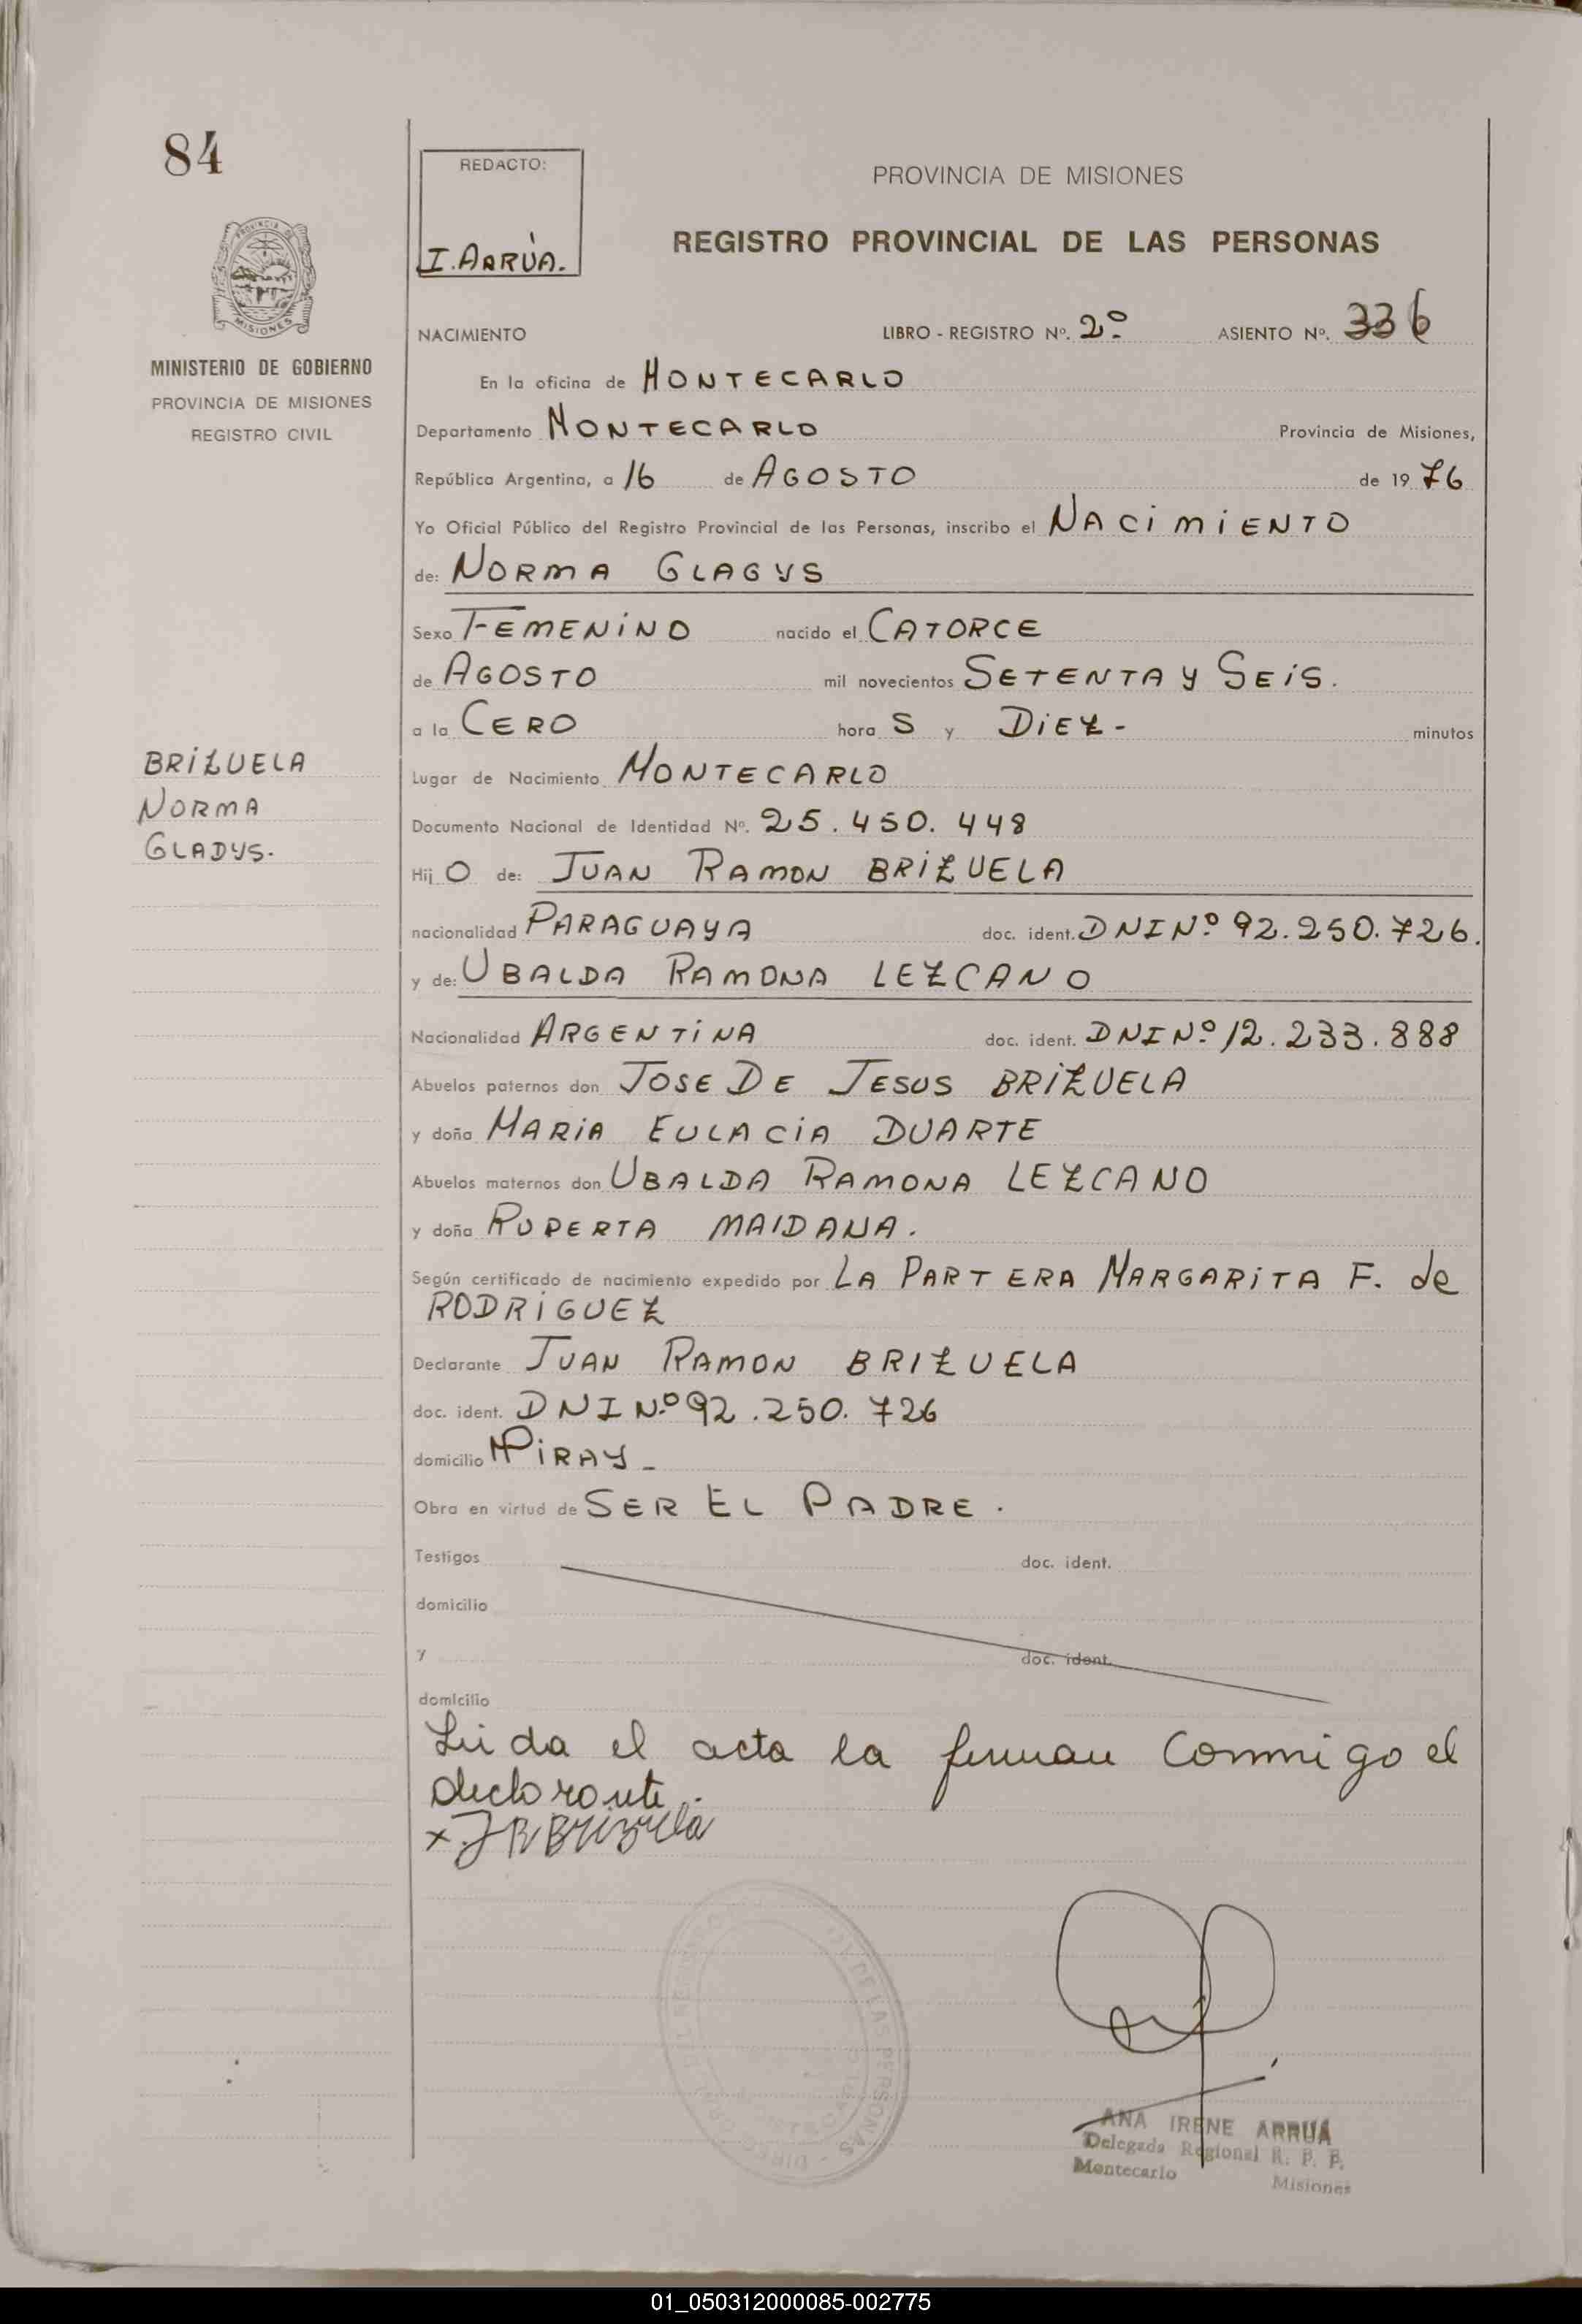 84
REDACTO:
I. ARRÚA.
PROVINCIA DE MISIONES
REGISTRO PROVINCIAL DE LAS PERSONAS
MISIONES
MINISTERIO DE GOBIERNO
PROVINCIA DE MISIONES
REGISTRO CIVIL
NACIMIENTO LIBRO - REGISTRO Nº. 2º ASIENTO Nº. 336
En la oficina de MONTECARLO
Departamento MONTECARLO Provincia de Misiones,
República Argentina, a 16 de AGOSTO de 1976
Yo Oficial Público del Registro Provincial de las Personas, inscribo el NACiMiENTO
de: NORMA GLAGYS
Sexo FEMENiNO nacido el CATORCE
de AGOSTO mil novecientos SETENTA Y SEiS.
a la CERO hora S y DiEZ - minutos
BRiZUELA
NORMA
GLADYS.
Lugar de Nacimiento MONTECARLO
Documento Nacional de Identidad Nº. 25.450.448
Hij O de: JUAN RAMON BRiZUELA
nacionalidad PARAGUAYA doc. ident. DNI Nº 92.250.726.
y de: UBALDA RAMONA LEZCANO
Nacionalidad ARGENTiNA doc. ident. DNI Nº 12.233.888
Abuelos paternos don JOSE DE JESUS BRiZUELA
y doña MARiA EULACiA DUARTE
Abuelos maternos don UBALDA RAMONA LEZCANO
y doña RUPERTA MAIDANA.
Según certificado de nacimiento expedido por LA PARTERA MARGARiTA F. de
RODRiGUEZ
Declarante JUAN RAMON BRIZUELA
doc. ident. DNI Nº 92.250.726
domicilio PiRAY -
Obra en virtud de SER EL PADRE.
Testigos doc. ident.
domicilio
y doc. ident.
domicilio
Leida el acta la firman Conmigo el
declarante.
x JR Brizuela
ANA IRENE ARRUÁ
Delegada Regional R. P. P.
Montecarlo Misiones
01_050312000085-002775